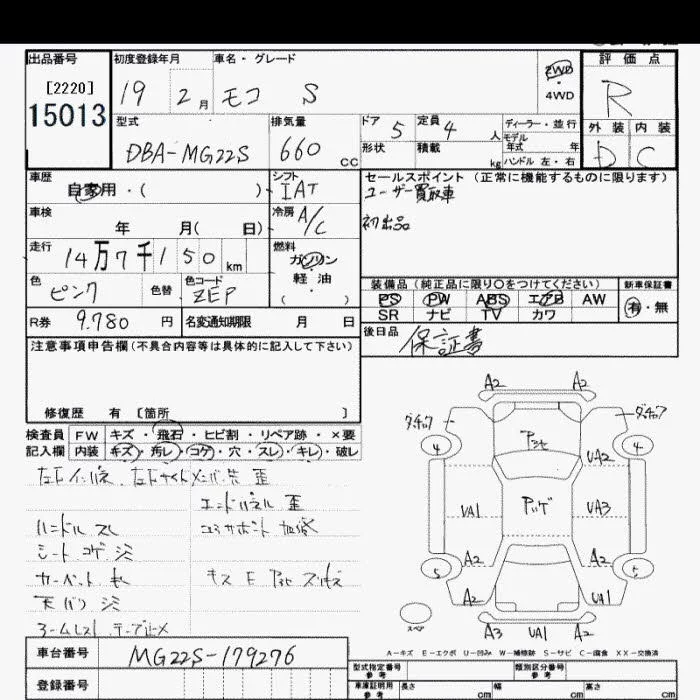 出品番号 初度登録年月 車名・グレード 2WD 評価点
[2220] 19 2月 モコ S ・ 4WD R
15013
型式 排気量 ドア 5 定員 4 人 ディーラー・並行 外装 内装
DBA-MG22S 660 cc 形状 積載 kg モデル年式 年 D C
ハンドル 左・右
車歴 シフト セールスポイント (正常に機能するものに限ります)
自家用・( ) IAT ユーザー買取車
車検 冷房 A/C 初出品
年 月( 日)
走行 燃料
14万7千150km ガソリン
・
軽油
( )
色 色替 色コード 装備品 (純正品に限り○をつけてください) 新車保証書
ピンク ZEP PS PW ABS エアB AW 有・無
SR ナビ TV カワ
R券 9.780 円 名変通知期限 月 日 後日品 保証書
注意事項申告欄 (不具合内容等は具体的に記入して下さい)
修復歴 有 [箇所 ]
検査員 FW キズ・飛石・ヒビ割・リペア跡・×要
記入欄 内装 キズ・汚レ・コゲ・穴・スレ・キレ・破レ
エンドパネル 歪
ハンドル スレ
シート コゲ シミ
カーペット
天バリ シミ
A2 A2
4 4
UA2
UA1 UA3
A2 A2
5 5
A2 UA1
スペア A3 UA1 A2
A-キズ E-エクボ U-凹み W-補修跡 S-サビ C-腐食 XX-交換済
車台番号 MG22S-179276 型式指定番号 参考 類別区分番号 参考
登録番号 車庫証明用 参考 長さ cm 幅 cm 高さ cm